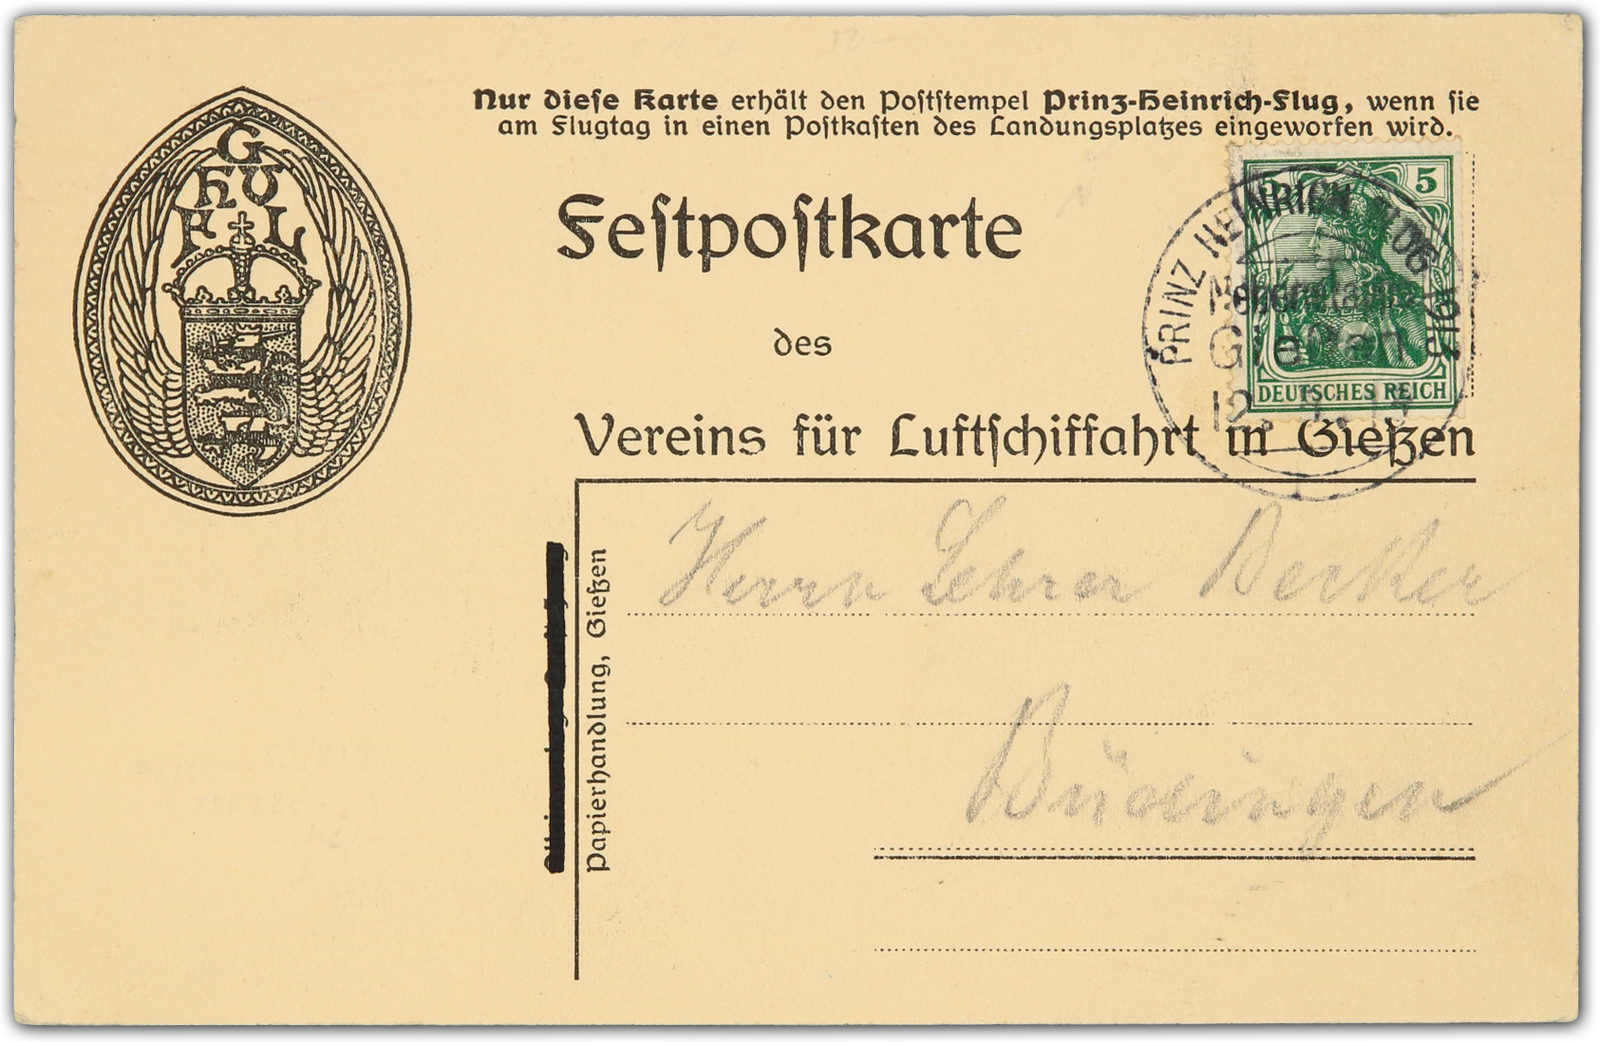 Nur dieſe Karte erhält den Poſtſtempel Prinz-Heinrich-Flug, wenn ſie
am Flugtag in einen Poſtkaſten des Landungsplatzes eingeworfen wird.
G
H V
F L
Feſtpoſtkarte
des
Vereins für Luftſchiffahrt in Gießen
5
DEUTSCHES REICH
PRINZ HEINRICH FLUG 1913
Gießen
12.
Papierhandlung, Gießen
Herrn Lehrer Becker
Büdingen